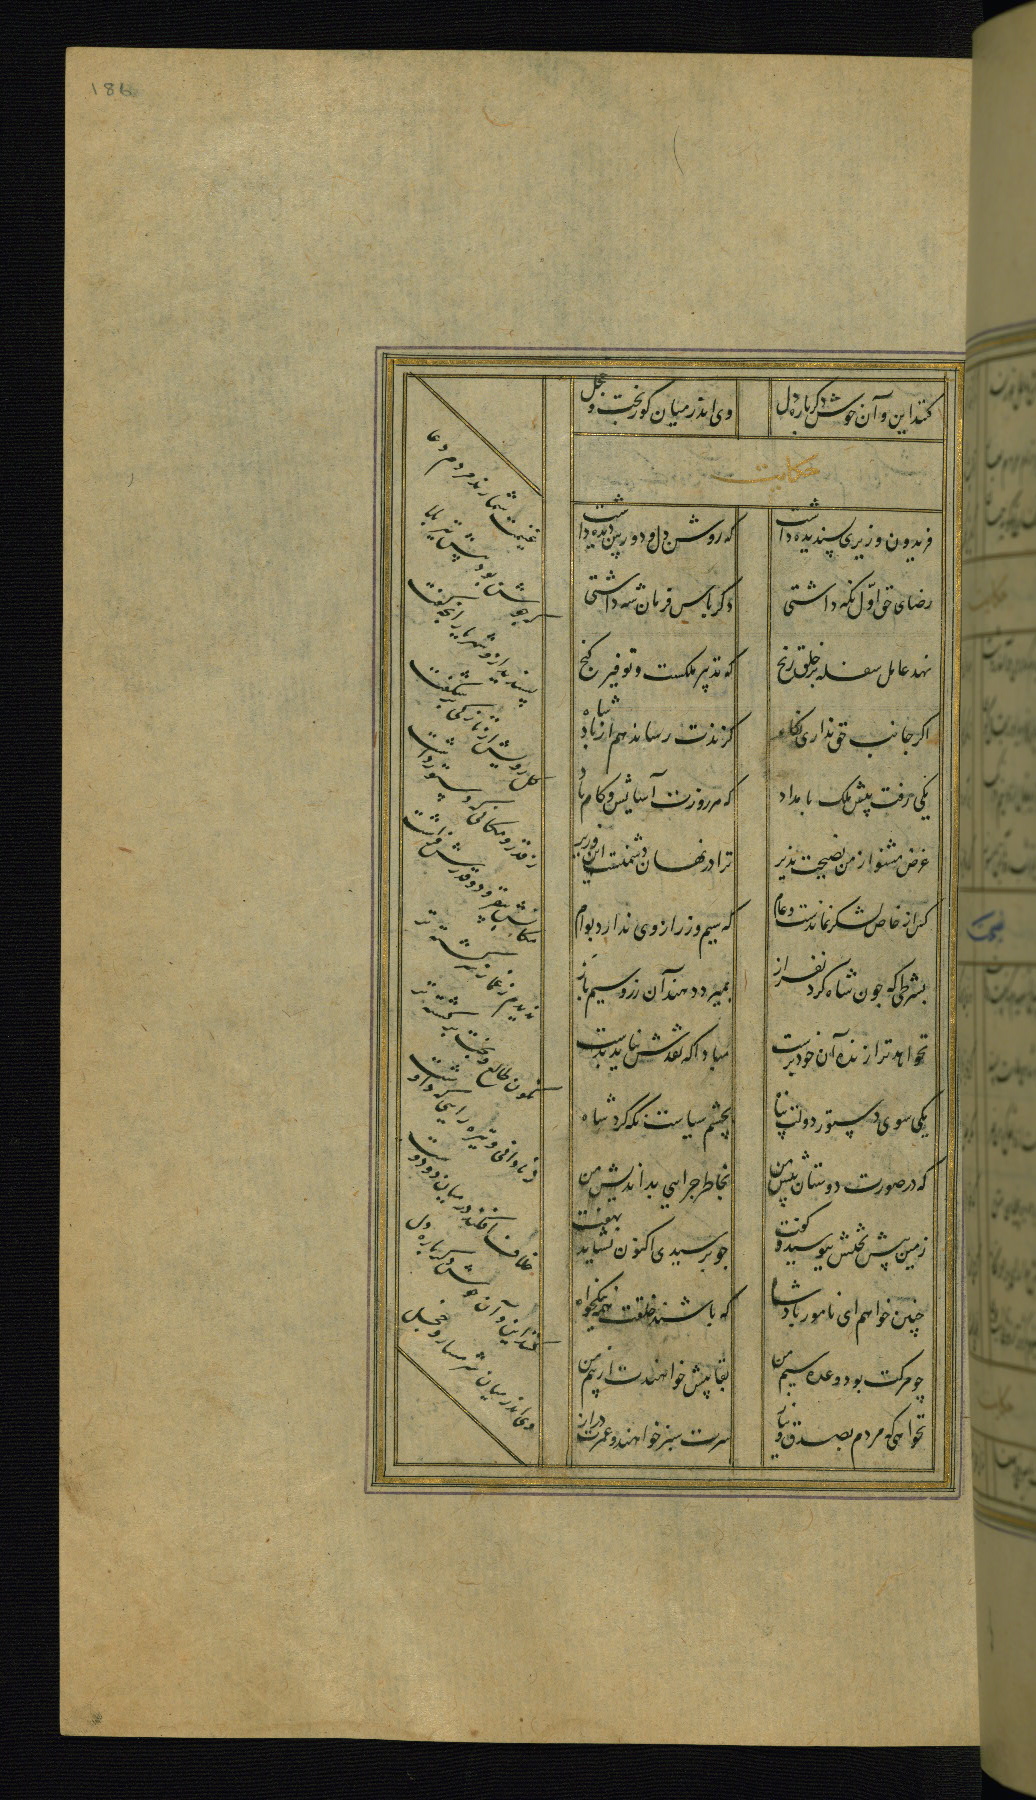 186
کنند این و آن خوش دگر باره دل
وی اندر میان کوربخت و خجل
حکایت
فریدون وزیری پسندیده داشت
که روشن دل و دوربین دیده داشت
رضای حق اول نگه داشتی
دگر پاس فرمان شه داشتی
نهد عامل سفله بر خلق رنج
که تدبیر ملکست و توفیر گنج
اگر جانب حق نداری نگاه
گزندت رساند هم از پادشاه
یکی رفت پیش ملک بامداد
که هر روزت آسایش و کام باد
غرض مشنو از من نصیحت پذیر
ترا در نهان دشمنست این وزیر
کس از خاص لشکر نماندست و عام
که سیم و زر از وی ندارد بوام
بشرطی که چون شاه گردن فراز
بمیرد دهند آن زر و سیم باز
نخواهد ترا زنده آن خودپرست
مبادا که نقدش نیاید بدست
یکی سوی دستور دولت پناه
بچشم سیاست نگه کرد شاه
که در صورت دوستان پیش من
بخاطر چرایی بداندیش من
زمین پیش تختش ببوسید و گفت
چو پرسیدی اکنون نشاید نهفت
چنین خواهم ای نامور پادشاه
که باشند خلقت همه نیکخواه
چو مرگت بود وعده سیم من
بقا بیش خواهندت از بیم من
نخواهی که مردم بصدق و نیاز
سرت سبز خواهند و عمرت دراز
غنیمت شمارند مردم دعا
که جوشن بود پیش تیر بلا
پسندید ازو شهریار آنچه گفت
گل رویش از تازگی بر شگفت
ز قدر و مکانی که دستور داشت
مکانش بیفزود و قدرش فراشت
ندیدم ز غماز سرگشته تر
نگون طالع و بخت برگشته تر
ز نادانی و تیره رایی که اوست
خلاف افکند در میان دو دوست
کنند این و آن خوش دگر باره دل
وی اندر میان شرمسار و خجل